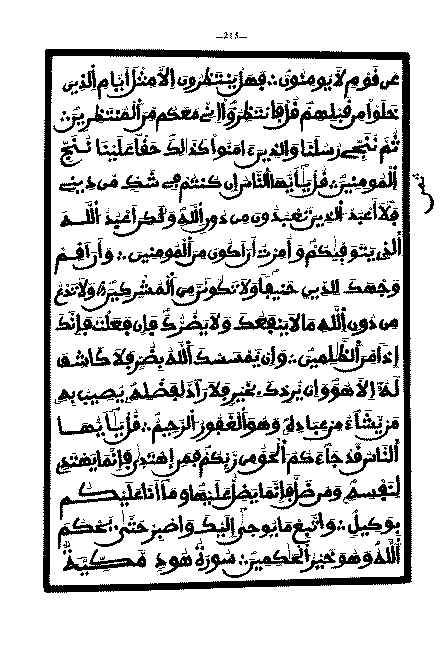 —215—
عن قوم لا يومنون ∴ فهل ينتظرون إلا مثل أيام الذين
خلوا من قبلهم قل فانتظروا إنى معكم من المنتظرين ∴
ثم ننجى رسلنا والذين ءامنوا كذلك حقا علينا ننج
المومنين ∴ قل يأيها الناس إن كنتم فى شك من دينى
فلا أعبد الذين تعبدون من دون الله ولكن أعبد الله
الذى يتوفيكم وأمرت أن أكون من المومنين ∴ وأن أقم
وجهك للدين حنيفا ولا تكونن من المشركين ∴ ولا تدع
من دون الله ما لا ينفعك ولا يضرك فإن فعلت فإنك
إذا من الظلمين ∴ وإن يمسسك الله بضر فلا كاشف
له إلا هو وإن يردك بخير فلا راد لفضله يصيب به
من يشاء من عباده وهو الغفور الرحيم ∴ قل يأيها
الناس قد جاءكم الحق من ربكم فمن اهتدى فإنما يهتدى
لنفسه ومن ضل فإنما يضل عليها وما أنا عليكم
بوكيل ∴ واتبع ما يوحى إليك واصبر حتى يحكم
الله وهو خير الحكمين ∴ سورة هود مكية
ثمن